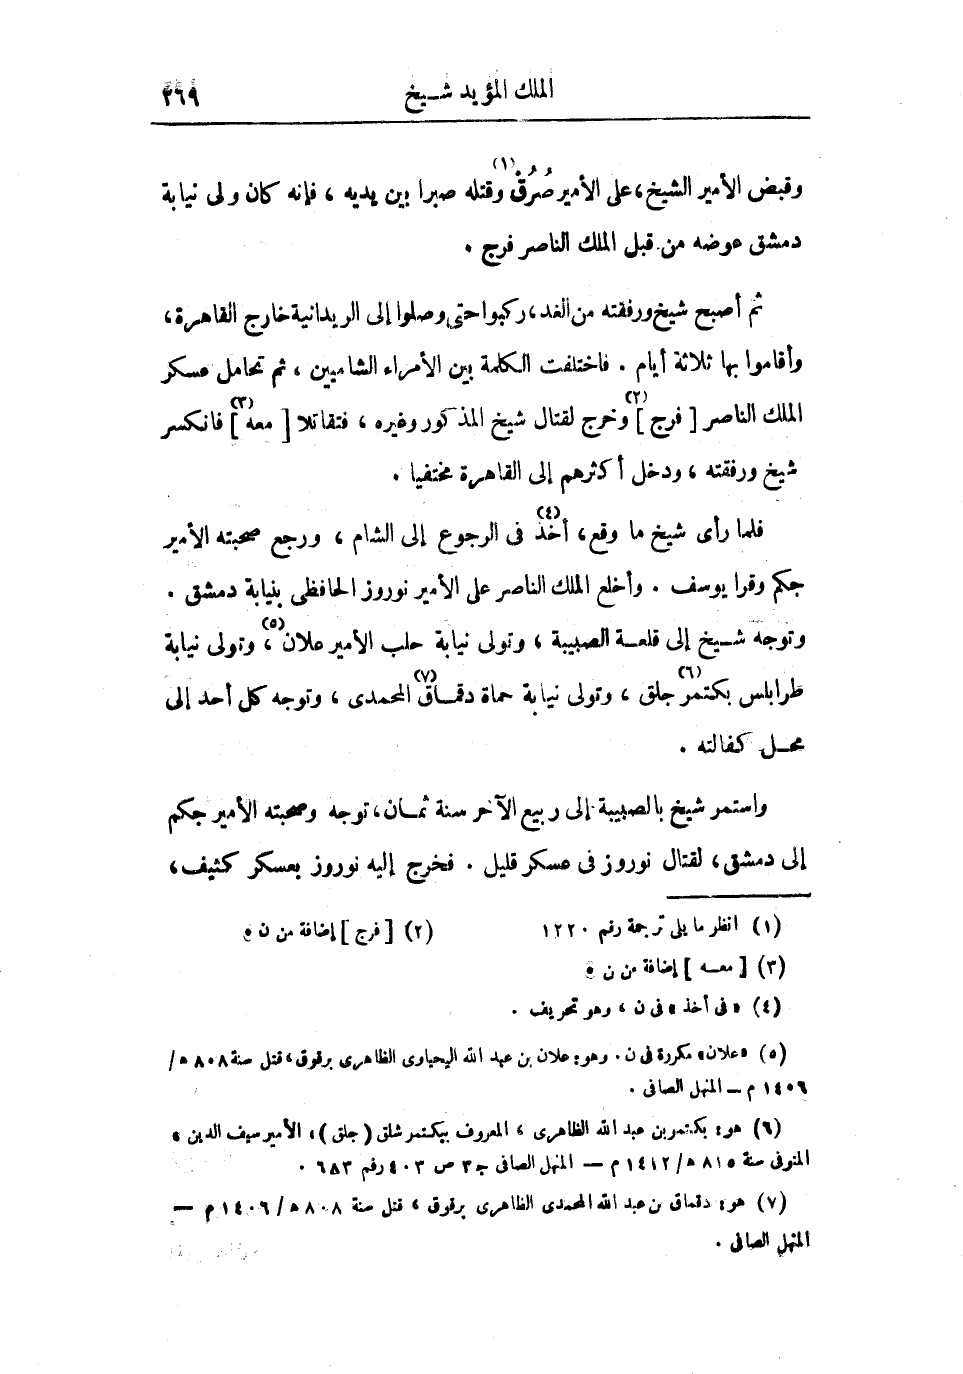 الملك المؤيد شيخ ٢٦٩
وقبض الأمير الشيخ، على الأمير صُرُق (١) وقتله صبرا بين يديه ، فإنه كان ولى نيابة
دمشق عوضه من قبل الملك الناصر فرج .
ثم أصبح شيخ ورفقته من الغد، ركبوا حتى وصلوا إلى الريدانية خارج القاهرة،
وأقاموا بها ثلاثة أيام . فاختلفت الكلمة بين الأمراء الشاميين ، ثم تحامل عسكر
الملك الناصر [ فرج ] (٢) وخرج لقتال شيخ المذكور وغيره ، فتقاتلا [ معه ] (٣) فانكسر
شيخ ورفقته ، ودخل أكثرهم إلى القاهرة مختفيا .
فلما رأى شيخ ما وقع، أخذ (٤) فى الرجوع إلى الشام ، ورجع صحبته الأمير
جكم وقرا يوسف . وأخلع الملك الناصر على الأمير نوروز الحافظى بنيابة دمشق .
وتوجه شيخ إلى قلعة الصبيبة ، وتولى نيابة حلب الأمير علان (٥) ، وتولى نيابة
طرابلس بكتمر (٦) جلق ، وتولى نيابة حماة دقماق (٧) المحمدى ، وتوجه كل أحد إلى
محل كفالته .
واستمر شيخ بالصبيبة إلى ربيع الآخر سنة ثمان، توجه وصحبته الأمير جكم
إلى دمشق، لقتال نوروز فى عسكر قليل . فخرج إليه نوروز بعسكر كثيف،
(١) انظر ما يلى ترجمة رقم ١٢٢٠ (٢) [ فرج ] إضافة من ن .
(٣) [ معه ] إضافة من ن .
(٤) « فى أخذ » فى ن ، وهو تحريف .
(٥) «علان» مكررة فى ن . وهو: علان بن عبد الله اليحياوى الظاهرى برقوق، قتل سنة ٨٠٨ ه/
١٤٠٦ م — المنهل الصافى .
(٦) هو: بكتمر بن عبد الله الظاهرى ، المعروف ببكتمر شلق ( جلق ) ، الأمير سيف الدين ،
المتوفى سنة ٨١٥ ه/ ١٤١٢ م — المنهل الصافى ج٣ ص ٤٠٣ رقم ٦٨٣ .
(٧) هو: دقماق بن عبد الله المحمدى الظاهرى برقوق ، قتل سنة ٨٠٨ ه/ ١٤٠٦ م —
المنهل الصافى .